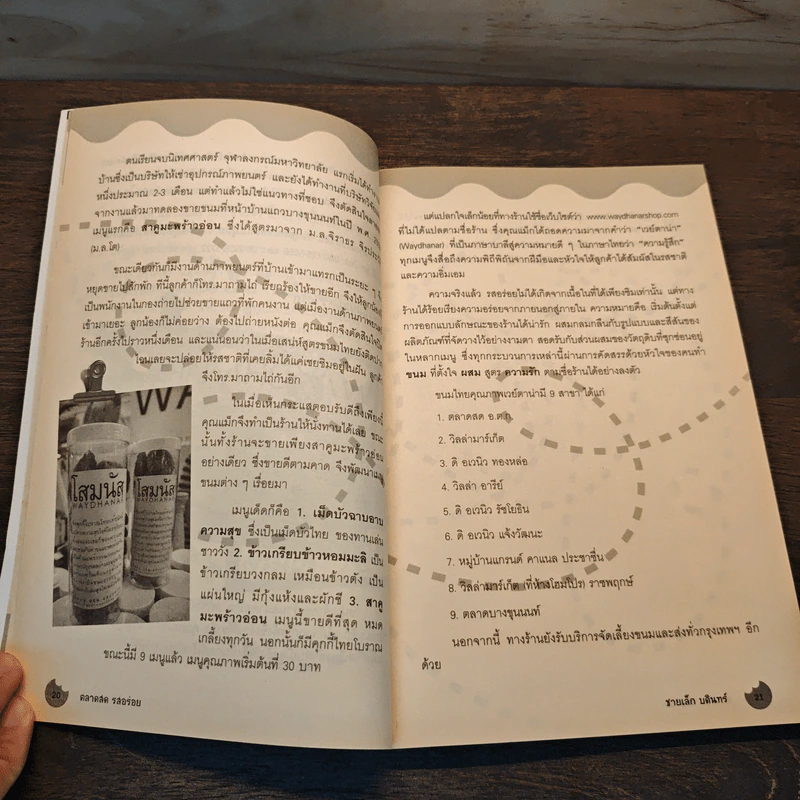 ตนเรียนจบนิเทศศาสตร์ จุฬาลงกรณ์มหาวิทยาลัย แรกเริ่มได้
บ้านซึ่งเป็นบริษัทให้เช่าอุปกรณ์ภาพยนตร์ และยังได้ทำงานที่บริษัท
หนึ่งประมาณ 2-3 เดือน แต่ทำแล้วไม่ใช่แนวทางที่ชอบ จึงตัดสินใจ
จากงานแล้วมาทดลองขายขนมที่หน้าบ้านแถวบางขุนนนท์ในปี พ.ศ.
เมนูแรกคือ สาคูมะพร้าวอ่อน ซึ่งได้สูตรมาจาก ม.ล.จิราธร
(ม.ล.โต)
ขณะเดียวกันก็มีงานด้านภาพยนตร์ที่บ้านเข้ามาแทรกเป็นระยะ ๆ
หยุดขายไปสักพัก ทีนี้ลูกค้าก็โทร.มาถามไถ่ เรียกร้องให้ขายอีก จึงให้ลูกน้อง
เป็นพนักงานในกองถ่ายไปช่วยขายแถวที่พักคนงาน แต่เมื่องานด้านภาพยนตร์
เข้ามาเยอะ ลูกน้องก็ไม่ค่อยว่าง ต้องไปถ่ายหนังต่อ คุณแม็กจึงตัดสินใจ
ร้านอีกครั้งไปราวหนึ่งเดือน และแน่นอนว่าในเมื่อเสน่ห์สูตรขนมไทยยังติด
ไฉนเลยจะปล่อยให้รสชาติที่เคยลิ้มได้แค่เชยชิมอยู่ในฝัน
จึงโทร.มาถามไถ่กันอีก
ในเมื่อเห็นกระแสตอบรับดีถึงเพียงนี้
คุณแม็กจึงทำเป็นร้านให้นั่งทานได้เลย
นั้นทั้งร้านจะขายเพียงสาคูมะพร้าวอ่อน
อย่างเดียว ซึ่งขายดีตามคาด จึงพัฒนาเมนู
ขนมต่าง ๆ เรื่อยมา
เมนูเด็ดก็คือ 1. เม็ดบัวฉาบอาบ
ความสุข ซึ่งเป็นเม็ดบัวไทย ของทานเล่น
ชาววัง 2. ข้าวเกรียบข้าวหอมมะลิ เป็น
ข้าวเกรียบวงกลม เหมือนข้าวตัง เป็น
แผ่นใหญ่ มีกุ้งแห้งและผักชี 3. สาคู
มะพร้าวอ่อน เมนูนี้ขายดีที่สุด หมด
เกลี้ยงทุกวัน นอกนั้นก็มีคุกกี้ไทยโบราณ
ขณะนี้มี 9 เมนูแล้ว เมนูคุณภาพเริ่มต้นที่ 30 บาท
โสมนัส
WAYDHANAR
โสมนัส
WAYDHANAR
20 ตลาดสด รสอร่อย
แต่แปลกใจเล็กน้อยที่ทางร้านใช้ชื่อเว็บไซต์ว่า www.waydhanarshop.com
ที่ไม่ได้แปลตามชื่อร้าน ซึ่งคุณแม็กได้ถอดความมาจากคำว่า “เวย์ดาน่า”
(Waydhanar) ที่เป็นภาษาบาลีสู่ความหมายดี ๆ ในภาษาไทยว่า “ความรู้สึก”
ทุกเมนูจึงสื่อถึงความพิถีพิถันจากฝีมือและหัวใจให้ลูกค้าได้สัมผัสในรสชาติ
และความอิ่มเอม
ความจริงแล้ว รสอร่อยไม่ได้เกิดจากเนื้อในที่ได้เพียงชิมเท่านั้น แต่ทาง
ร้านได้ร้อยเรียงความอร่อยจากภายนอกสู่ภายใน ความหมายคือ เริ่มต้นตั้งแต่
การออกแบบลักษณะของร้านได้น่ารัก ผสมกลมกลืนกับรูปแบบและสีสันของ
ผลิตภัณฑ์ที่จัดวางไว้อย่างงามตา สอดรับกับส่วนผสมของวัตถุดิบที่ซุกซ่อนอยู่
ในหลากเมนู ซึ่งทุกกระบวนการเหล่านี้ผ่านการคัดสรรด้วยหัวใจของคนทำ
ขนม ที่ตั้งใจ ผสม สูตร ความรัก ตามชื่อร้านได้อย่างลงตัว
ขนมไทยคุณภาพเวย์ดาน่ามี 9 สาขา ได้แก่
1. ตลาดสด อ.ต.ก.
2. วิลล่ามาร์เก็ต
3. ดิ อเวนิว ทองหล่อ
4. วิลล่า อารีย์
5. ดิ อเวนิว รัชโยธิน
6. ดิ อเวนิว แจ้งวัฒนะ
7. หมู่บ้านแกรนด์ คาแนล ประชาชื่น
8. วิลล่ามาร์เก็ต (ที่ห้างโฮมโปร) ราชพฤกษ์
9. ตลาดบางขุนนนท์
นอกจากนี้ ทางร้านยังรับบริการจัดเลี้ยงขนมและส่งทั่วกรุงเทพฯ อีก
ด้วย
ชายเล็ก บดินทร์ 21